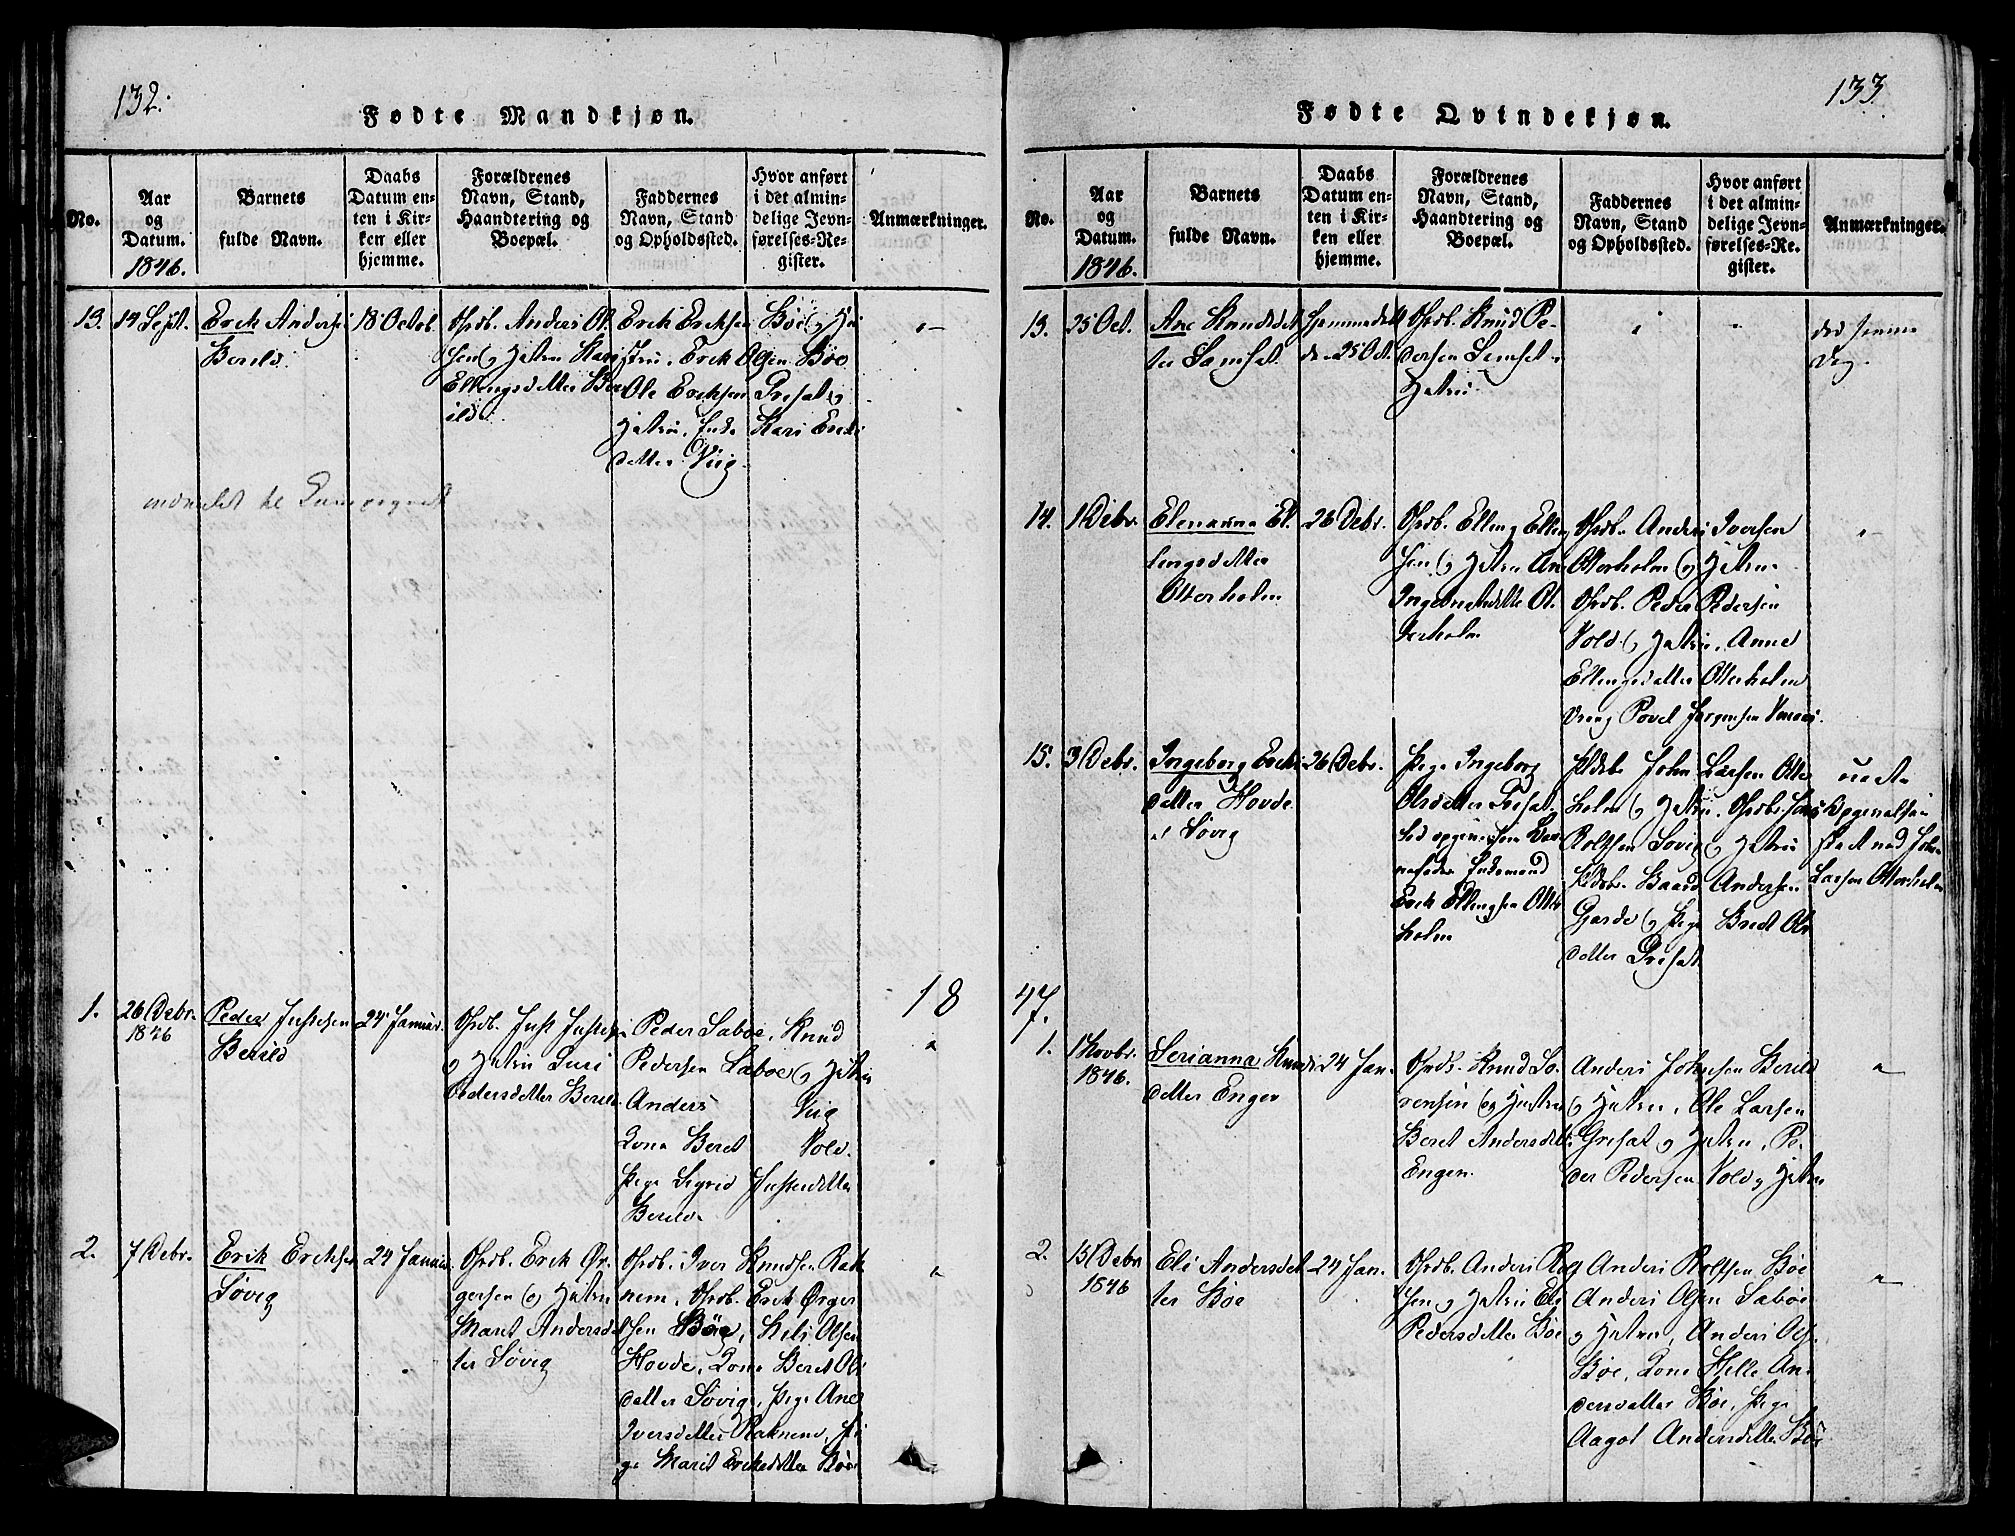 132.
Fødte Mandkjøn.
No.
Aar
og
Datum.
1846.
Barnets
fulde Navn.
Daabs
Datum en-
ten i Kir-
ken eller
hjemme.
Forældrenes
Navn, Stand,
Haandtering og
Boepæl.
Faddernes
Navn, Stand
og Opholdssted.
Hvor anført
i det almin-
delige Jevn-
førelses-Re-
gister.
Anmærkninger.
13.
14 Sept.
Erik Anders
Berild
18 Octob.
Grdb. Anders Ol
sen og Hstru Kari
Ellingsdatter Ber
ild
Erik Eriksen Bøe og Hu
stru, Erik Olsen Bøe
Ole Eriksen Gresat og
Hstru,
Kari Eriks
datter Viig.
1.
26 Debr.
1846
Peder Justesen
Berild
24 Januar.
Grdb. Just Justes
og Hstru Susi
Pedersdatter Berild
Peder Saboe, Knud
Pedersen Saboe og Hstru
Anders Viig
Kone Beret Vold.
Pige Sigrid Justesdatter
Berild
2.
7 Debr.
Erik Eriksen
Søvig
24 Januar
Grdb. Erik Ør
gersen og Hstru
Marit Andersdat
ter Søvig
Grdb. Iver Knudsen Rak
nem, Grdb. Erik Ørger
sen Bøe, Olsen
Hovde, Kone Beret Ols
datter Søvig, Pige Ane
Iversdatter Raknem, Pi
ge Marit Eriksdatter Bøe
18
133
Fødte Qvindekjøn.
No.
Aar
og
Datum.
1846.
Barnets
fulde Navn.
Daabs
Datum en-
ten i Kir-
ken eller
hjemme.
Forældrenes
Navn, Stand,
Haandtering og
Boepæl.
Faddernes
Navn, Stand
og Opholdssted.
Hvor anført
i det almin-
delige Jevn-
førelses-Re-
gister.
Anmærkninger.
13.
25 Oct.
Ane Knudsdat
ter Samsat.
Hjemmedøbt
den 25 Oct.
Grdb. Knud Pe-
dersen Samsat
Hstru
død samme
Dag.
14.
1 Debr.
Elenanna El-
lingsdatter
Otterholm
26 Debr.
Grdb. Elling Elling
sen og Hstru An
Ingebrigtsdatter Ot
terholm
Grdb. Anders Iversen
Otterholm og Hstru
Grdb. Peder Pedersen
Vold og Hstru, Anne
Ellingsdatter Otterholm
Dreng Povel Jørgensen
15.
3 Debr.
Ingeborg Eriks
datter Hovde
Søvig
26 Debr.
Pige Ingeborg
Olsdatter Gresat
Erik Ellingsen Otter
holm
John Larsen Otter
holm og Hstru, Grdb.
Rolfsen Søvig og Hstru
Baard Andersen
Gjerde og Pige Bret Ols
datter Gresat
John
Larsen Otterholm
47.
1.
1 Novbr.
1846.
Serianna Knuds
datter Engen
24 Jan.
Grdb. Knud So-
rensen og Hustru
Beret Andersdatter
Engen.
Anders Johnsen Berild
og Hstru, Ole Larsen
Gresat og Hstru, Pe-
der Pedersen Vold og Hstru
2.
15 Debr
1846
Eli Andersdat
ter Bøe
24 Jan.
Grdb. Anders Rolf
sen og Hstru Eli
Pedersdatter Bøe
Anders Rolfsen Bøe
Anders Olsen Saboe
og Hstru, Anders Ols.
Bøe, Kone Helle An-
dersdatter Bøe, Pige
Aagot Andersdatter Bøe